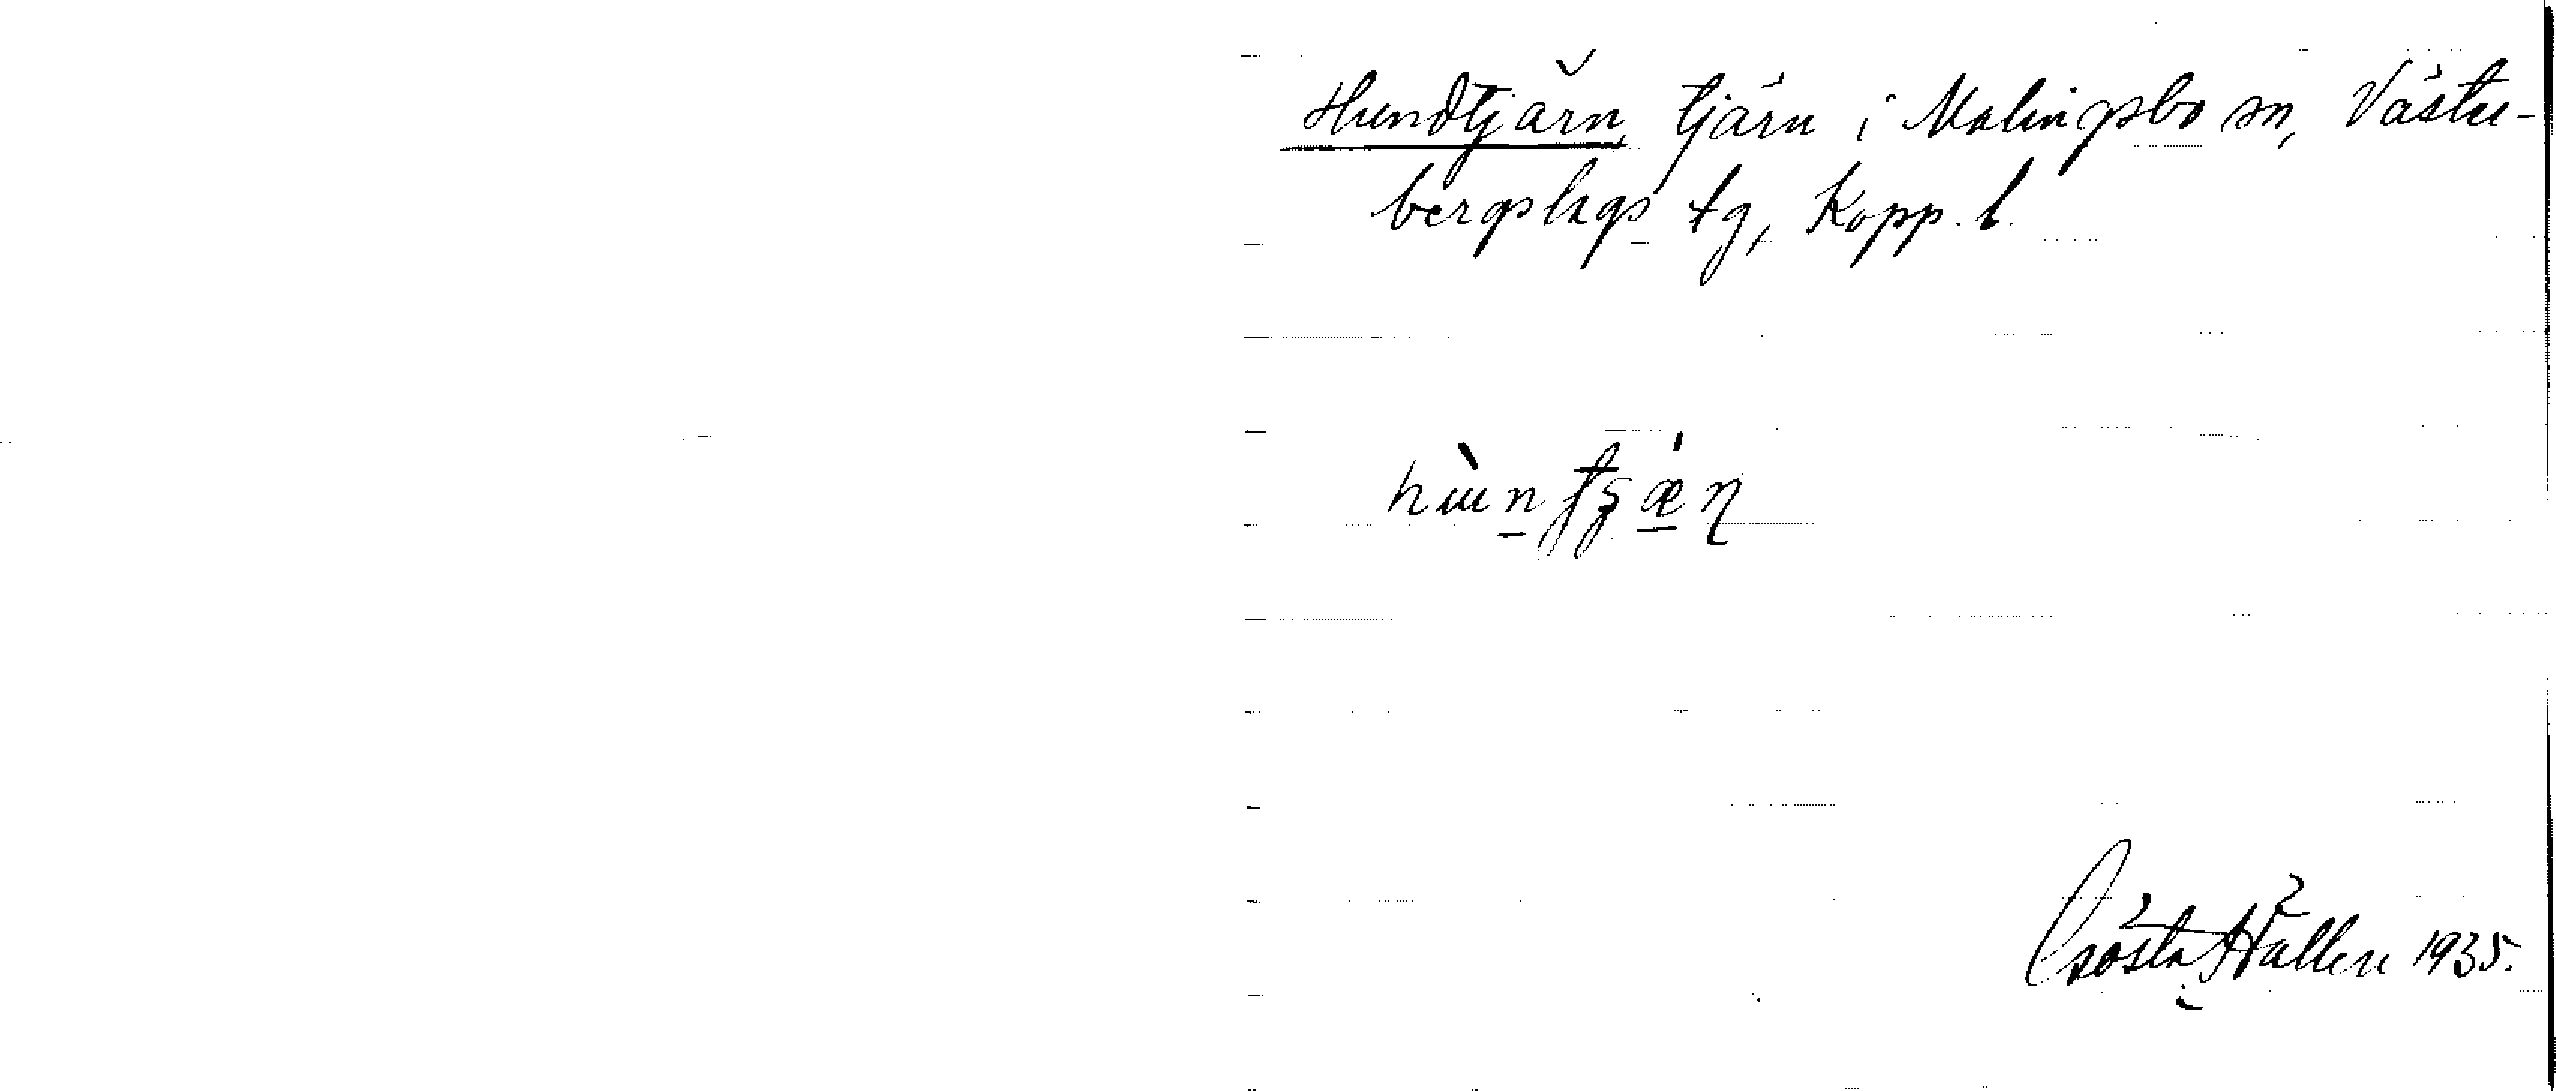 Hundtjärn, tjärn i Malingsbo sn, Väster-
bergslags tg, Kopp. l.
Gösta Hållen 1935.